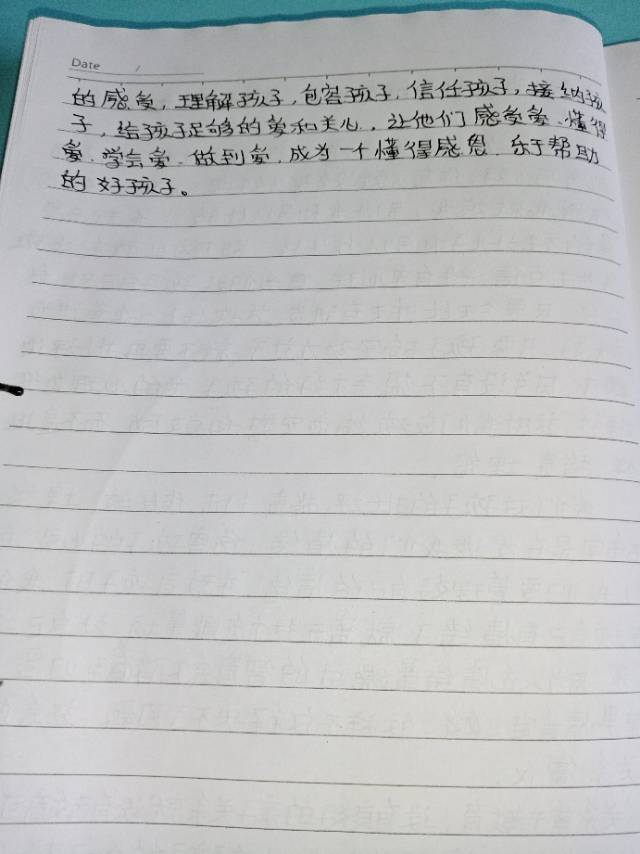 Date /
的感受，理解孩子，包容孩子，信任孩子，接纳孩
子，给孩子足够的爱和关心，让他们感受爱，懂得
爱，学会爱，做到爱，成为一个懂得感恩，乐于帮助
的好孩子。